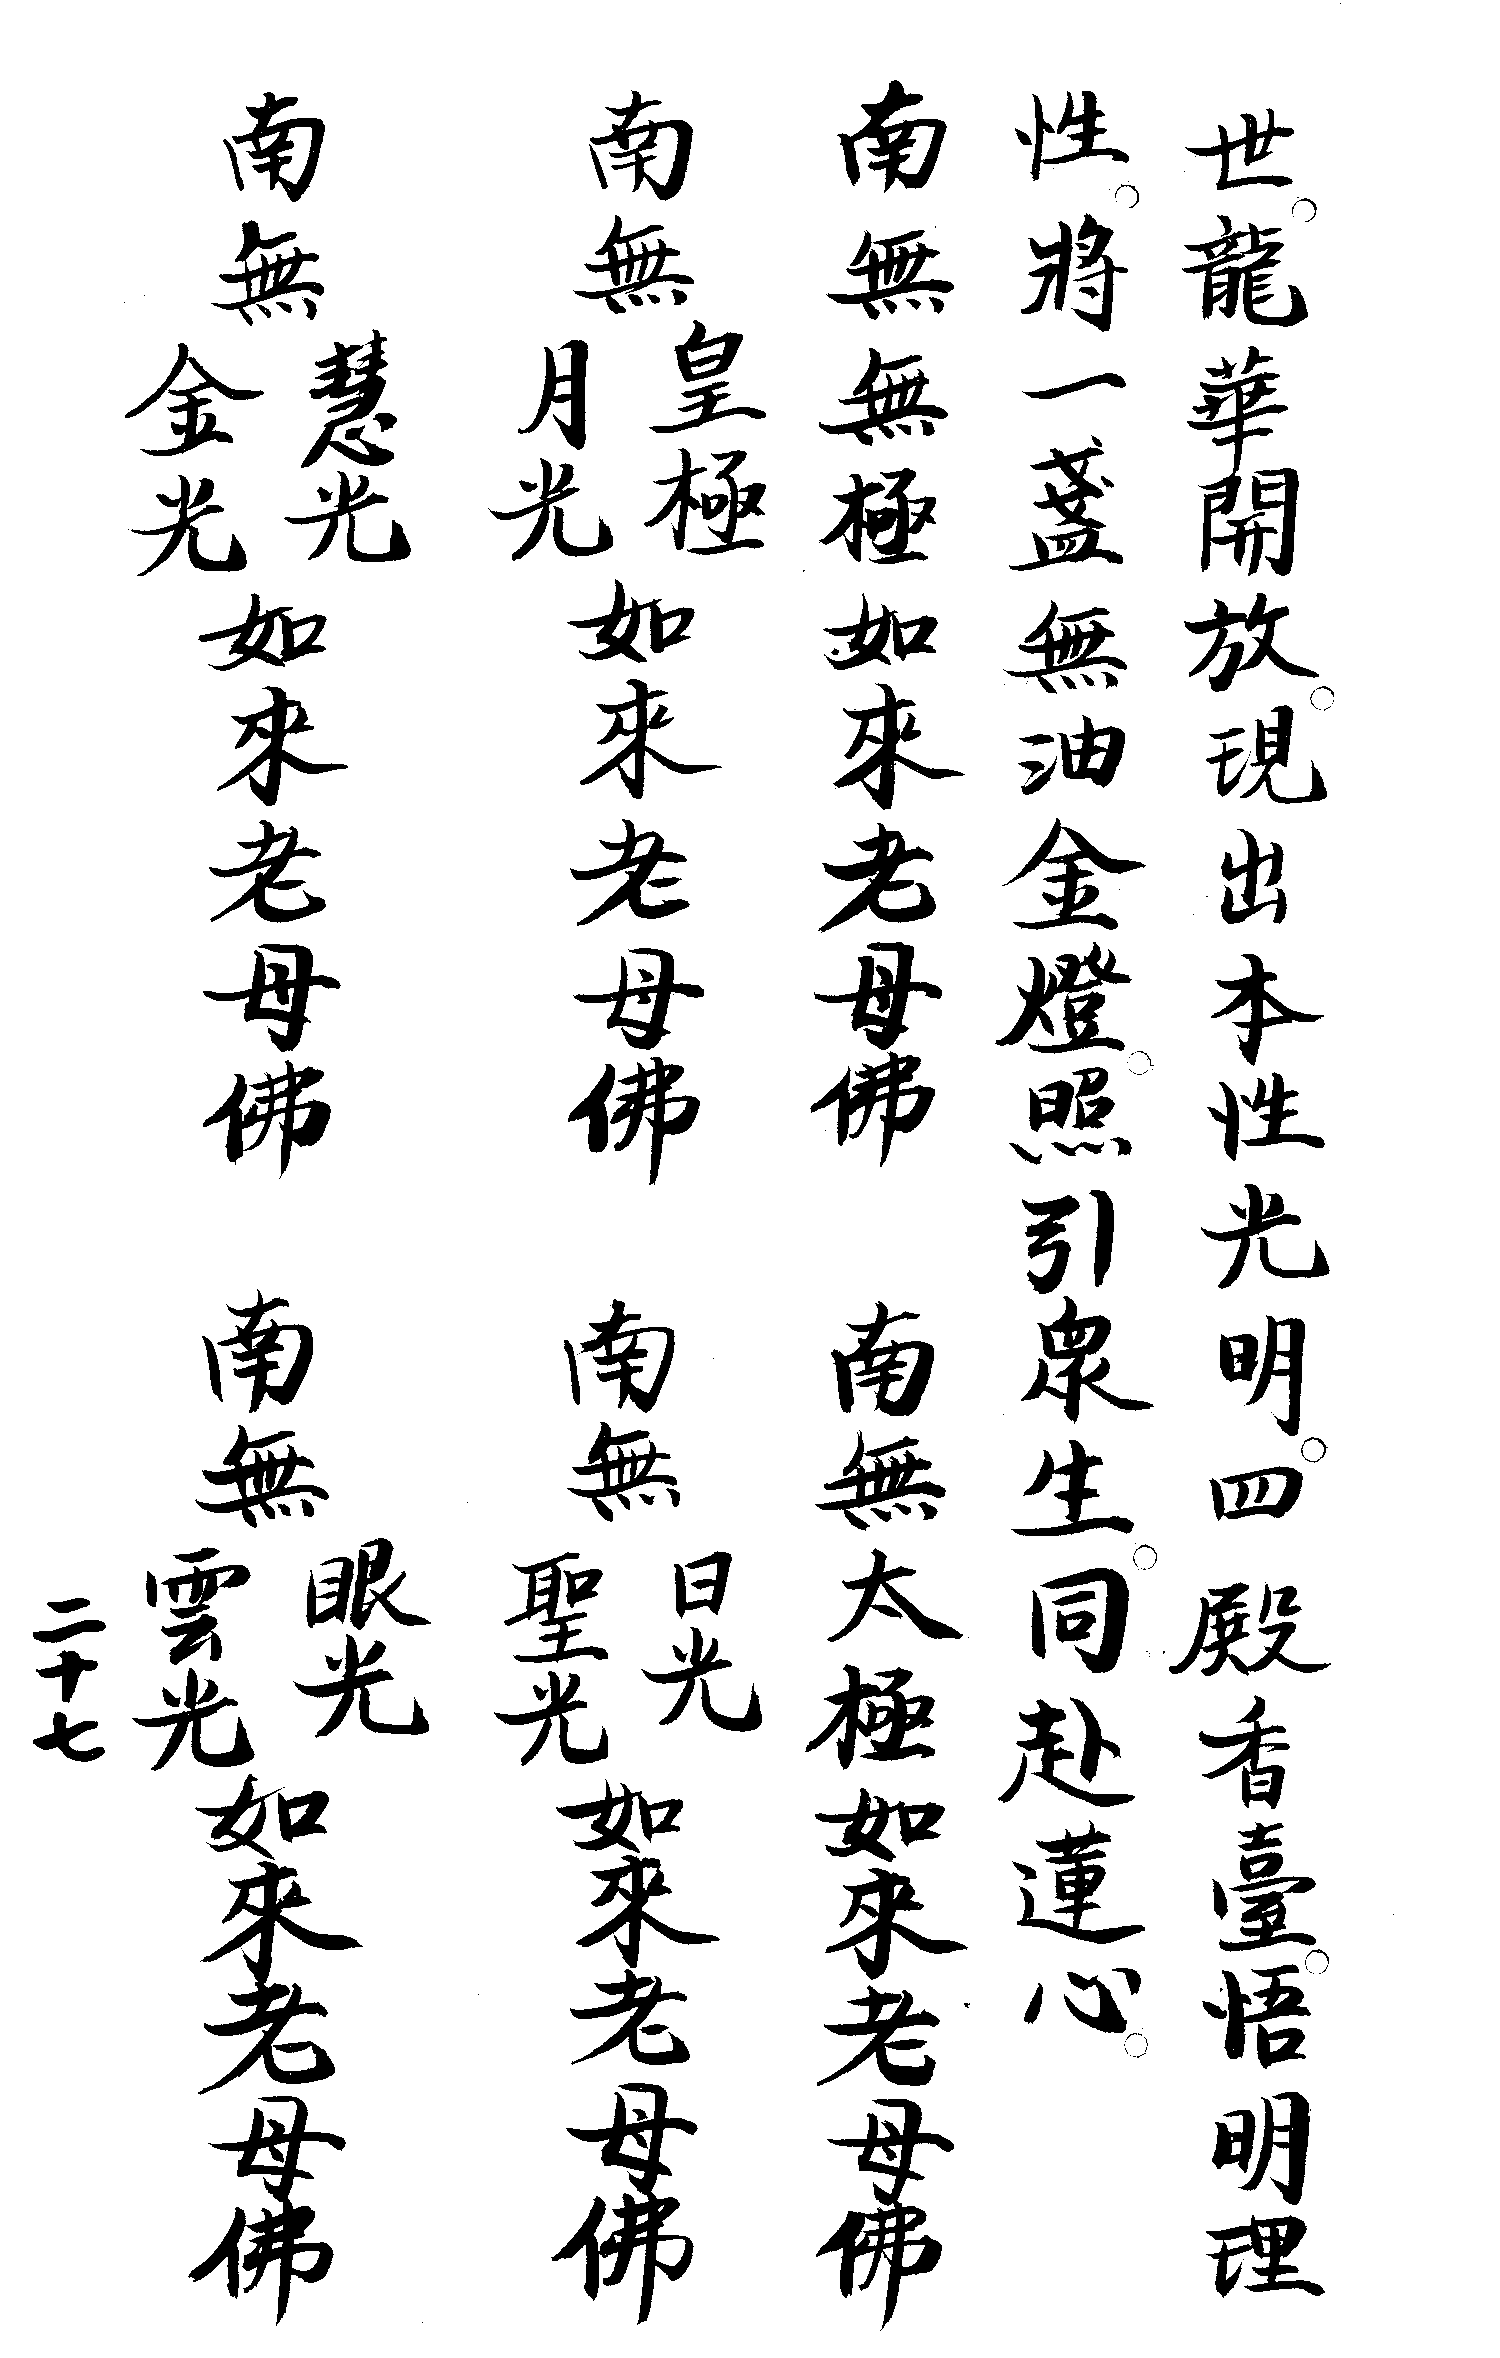 世。龍華開放。現出本性光明。四殿香臺。悟明理
性。將一盞無油金燈。照引衆生。同赴蓮心。
南無無極如來老母佛　南無太極如來老母佛
南無皇極月光如來老母佛　南無日光聖光如來老母佛
南無慧光金光如來老母佛　南無眼光雲光如來老母佛
二十七